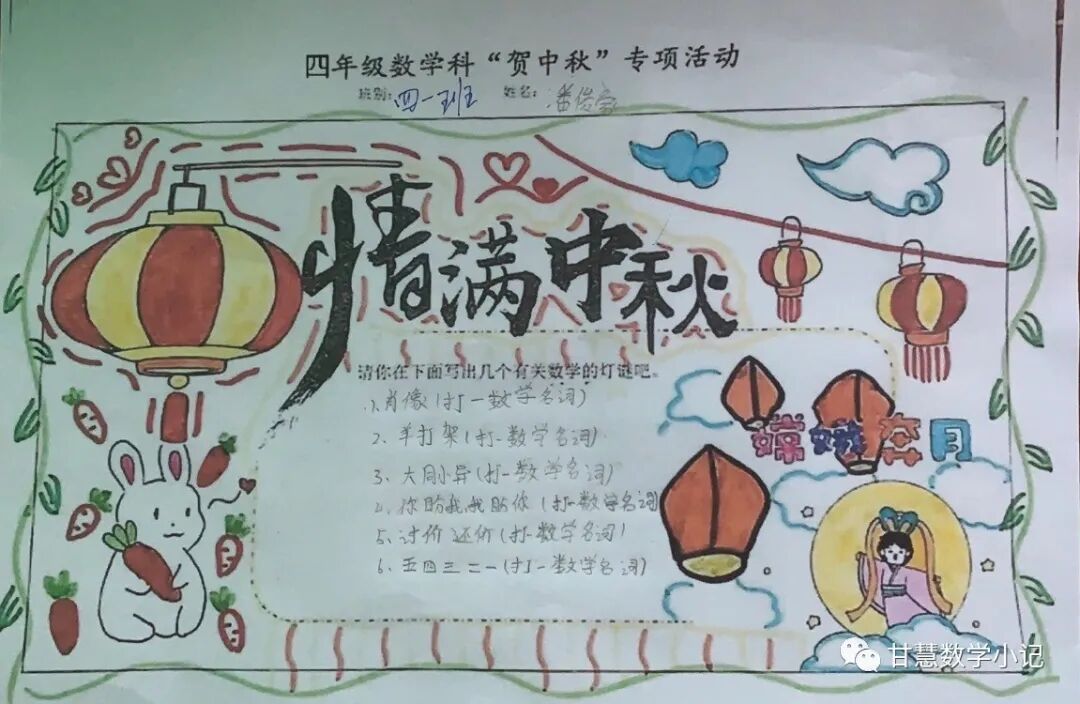 四年级数学科“贺中秋”专项活动
班别：四一班 姓名：潘俊
情满中秋
请你在下面写出几个有关数学的灯谜吧。
1、肖像(打一数学名词)
2、羊打架(打一数学名词)
3、大同小异(打一数学名词)
4、你盼我我盼你(打一数学名词
5、讨价还价(打一数学名词)
6、五四三二一(打一数学名词)
嫦娥奔月
甘慧数学小记